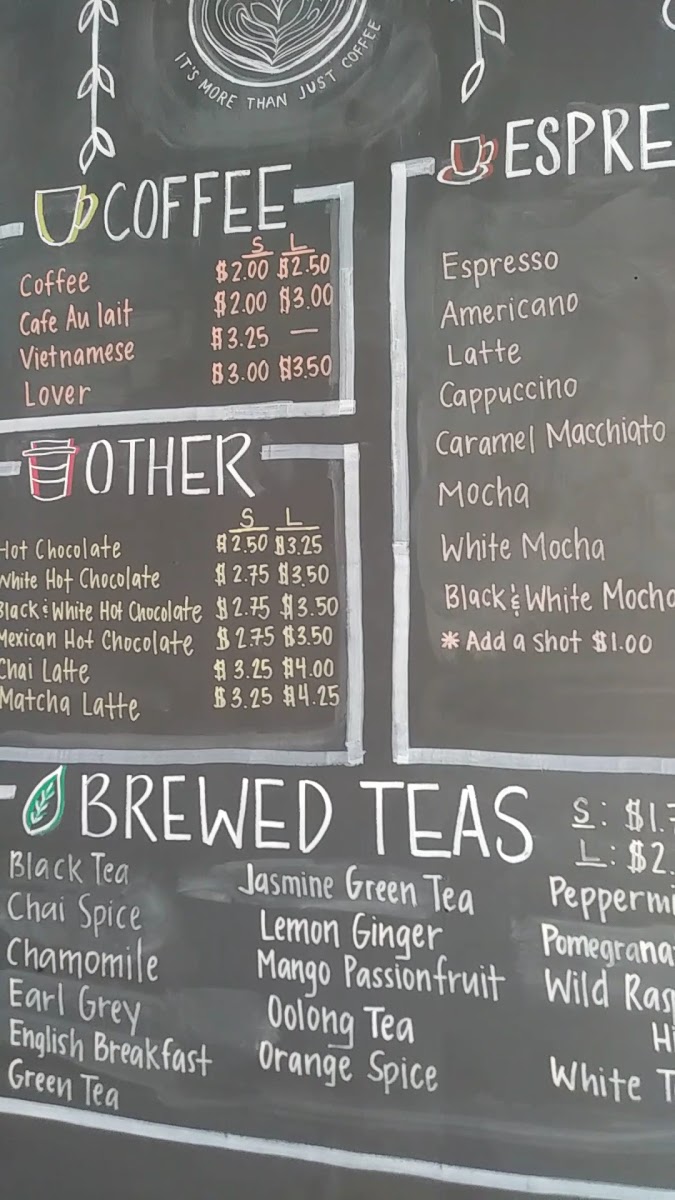 IT'S MORE THAN JUST COFFEE
COFFEE
S L
Coffee $2.00 $2.50
Cafe Au lait $2.00 $3.00
Vietnamese $3.25 —
Lover $3.00 $3.50
OTHER
S L
Hot Chocolate $2.50 $3.25
White Hot Chocolate $2.75 $3.50
Black & White Hot Chocolate $2.75 $3.50
Mexican Hot Chocolate $2.75 $3.50
Chai Latte $3.25 $4.00
Matcha Latte $3.25 $4.25
ESPRE
Espresso
Americano
Latte
Cappuccino
Caramel Macchiato
Mocha
White Mocha
Black & White Mocha
* Add a shot $1.00
BREWED TEAS
S: $1.
L: $2.
Black Tea
Chai Spice
Chamomile
Earl Grey
English Breakfast
Green Tea
Jasmine Green Tea
Lemon Ginger
Mango Passionfruit
Oolong Tea
Orange Spice
Pepperm
Pomegrana
Wild Ras
H
White T